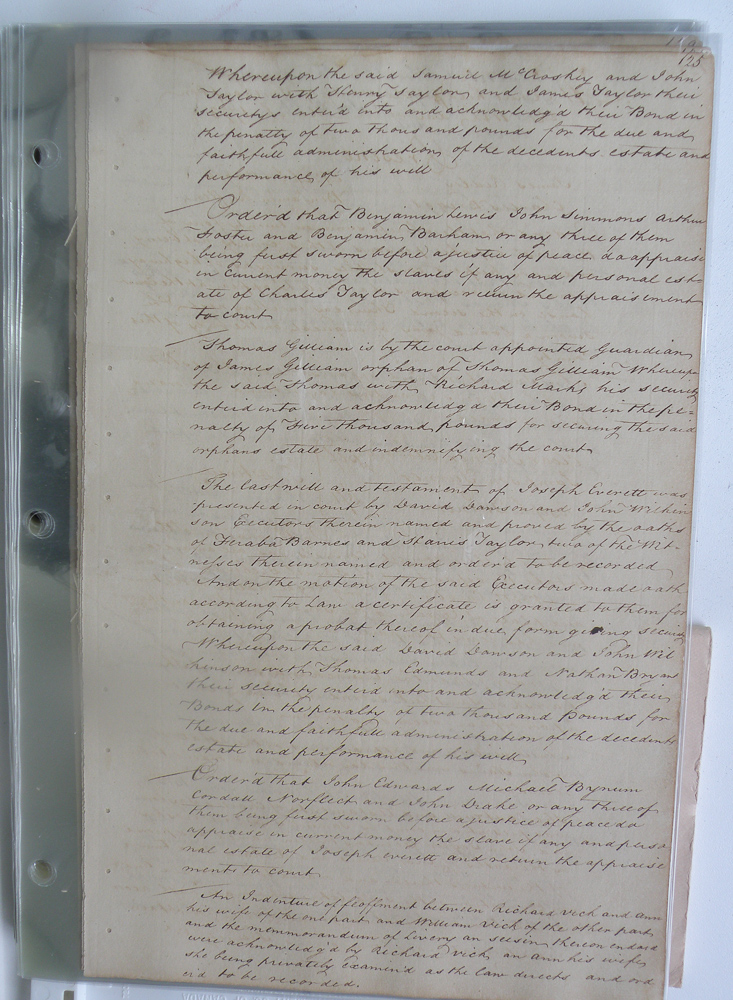 123
Whereupon the said Samuel McCroskey and John
Taylor with Henry Taylor and James Taylor their
securitys enter'd into and acknowledg'd their Bond in
the penalty of two thousand pounds for the due and
faithfull administration of the decedents estate and
performance of his will
Order'd that Benjamin Lewis John Simmons Arthur
Foster and Benjamin Barham or any three of them
being first sworn before a justice of peace do appraise
in current money the slaves if any and personal est-
ate of Charles Taylor and return the appraisement
to court
Thomas Gilliam is by the court appointed Guardian
of James Gilliam orphan of Thomas Gilliam Whereup
the said Thomas with Richard Marks his security
enter'd into and acknowledg'd their Bond in the pe=
nalty of Five thousand pounds for securing the said
orphans estate and indemnifying the court
The last will and testament of Joseph Everett was
presented in court by David Dawson and John Wilkin
son Executors therein named and proved by the oaths
of Feraba Barnes and Taylor two of the Wit-
nesses therein named and order'd to be recorded
And on the motion of the said Executors made oath
according to Law a certificate is granted to them for
obtaining a probat thereof in due form giving security
Whereupon the said David Dawson and John Wil
kinson with Thomas Edmunds and Nathan Bryan
their security enter'd into and acknowledg'd their
Bonds in the penalty of two thousand Pounds for
the due and faithfull administration of the decedents
estate and performance of his will
Order'd that John Edwards Michael Bynum
Cordall Norfleet and John Drake or any three of
them being first sworn before a justice of peace do
appraise in current money the slave if any and perso
nal estate of Joseph everett and return the appraise
ments to court
An Indenture of feoffment between Richard Vick and ann
his wife of the one part and William Vick of the other part
and the memmorandum of Livery an seesin thereon endors'd
were acknowledg'd by Richard Vick an ann his wife
she being privately examin'd as the law directs and ord
er'd to be recorded.